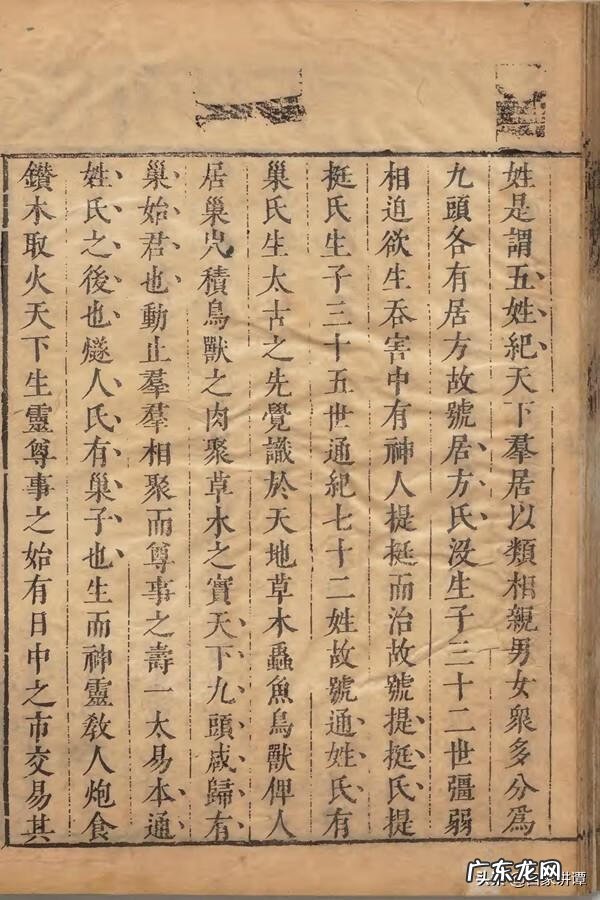 姓是謂五姓紀天下羣居以類相親男女衆多分爲
九頭各有居方故號居方氏沒生子三十二世彊弱
相迫欲生吞害中有神人提挺而治故號提挺氏提
挺氏生子三十五世通紀七十二姓故號通姓氏有
巢氏生太古之先覺識於天地草木蟲魚鳥獸俾人
居巢穴積鳥獸之肉聚草木之實天下九頭咸歸有
巢始君也動止羣羣相聚而尊事之壽一太易本通
姓氏之後也燧人氏有巢子也生而神靈教人炮食
鑽木取火天下生靈尊事之始有日中之市交易其
广东龙网